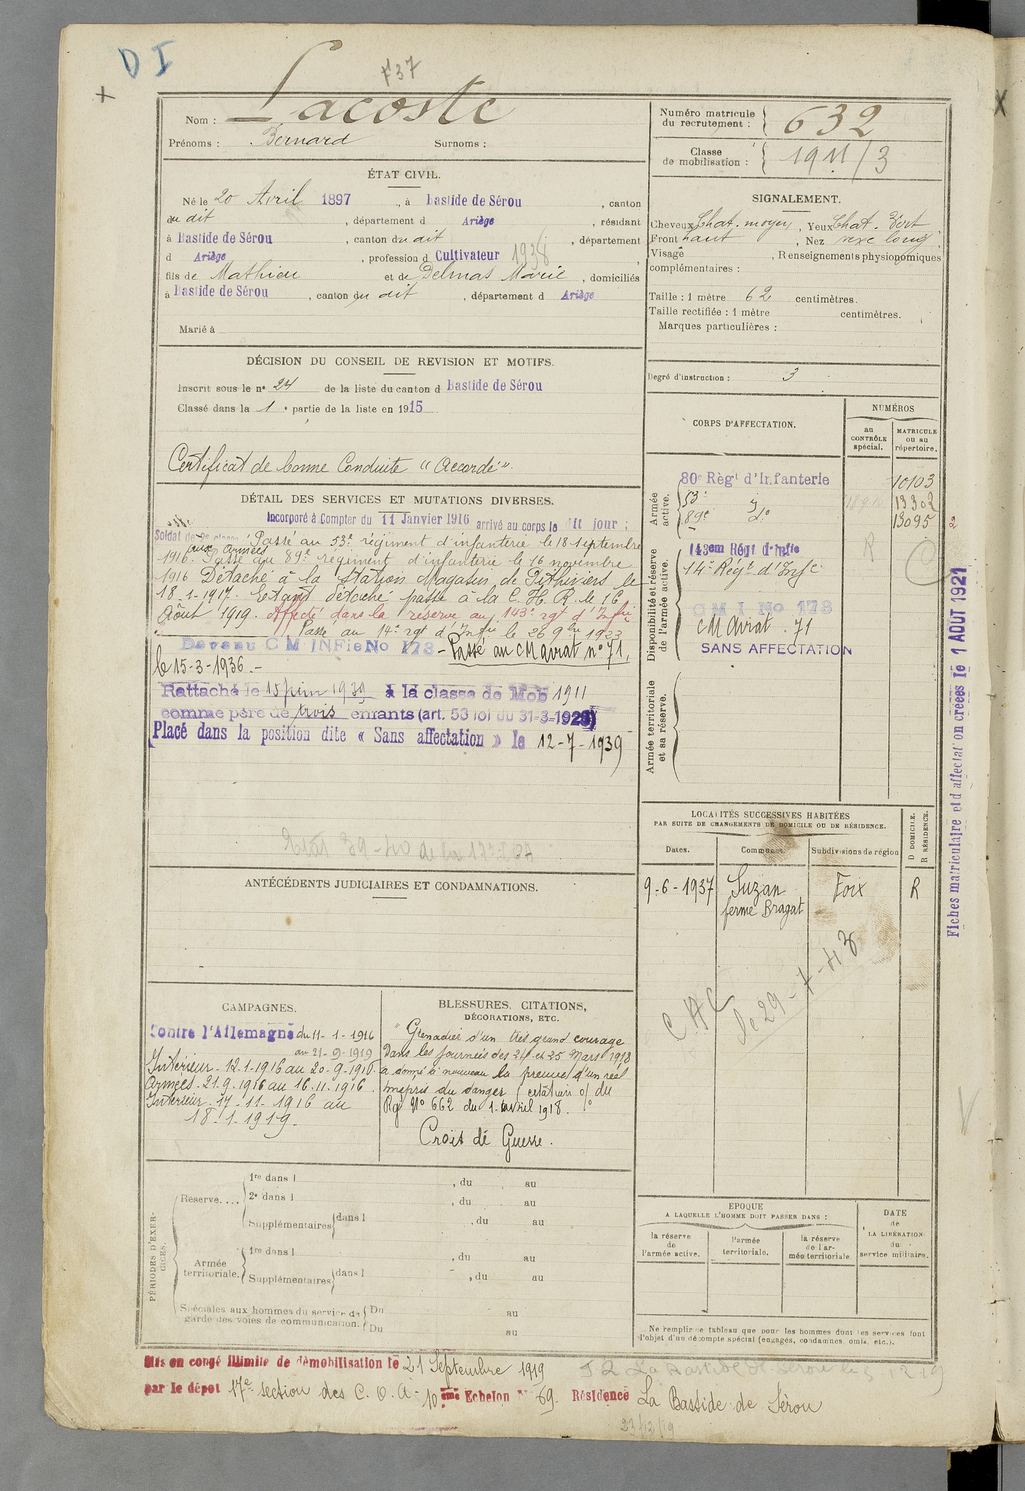 D I
F 37
Nom : Lacoste
Prénoms : Bernard Surnoms :
Numéro matricule du recrutement : 632
Classe de mobilisation : 1911/3
ÉTAT CIVIL.
Né le 20 Avril 1897, à Bastide de Sérou, canton
du dit, département d Ariège, résidant
à Bastide de Sérou, canton du dit, département
d Ariège, profession d Cultivateur 1938
fils de Mathieu et de Delmas Marie, domiciliés
à Bastide de Sérou, canton du dit, département d Ariège
Marié à
SIGNALEMENT.
Cheveux Chat. moyen, Yeux Chat. Vert
Front haut, Nez rexe long
Visage, Renseignements physiopomiques
complémentaires :
Taille : 1 mètre 62 centimètres.
Taille rectifiée : 1 mètre centimètres.
Marques particulières :
Degré d'instruction : 3
DÉCISION DU CONSEIL DE REVISION ET MOTIFS.
Inscrit sous le n° 24 de la liste du canton d Bastide de Sérou
Classé dans la 1e partie de la liste en 1915
Certificat de bonne Conduite "Accordé".
DÉTAIL DES SERVICES ET MUTATIONS DIVERSES.
Incorporé à Compter du 11 Janvier 1916 arrivé au corps le dit jour ;
Soldat de 2e classe. Passé au 53e régiment d'infanterie le 18 septembre
1916 aux Armées. Passé au 89e régiment d'infanterie le 16 novembre
1916 Détaché à la Station Magasin de Pithiviers le
18-1-1917. Etant détaché passé à la C. H. R. le 16
Août 1919. Affecté dans la réserve au 143e rgt d'Infie
Passé au 14e rgt d'Infie le 26 9bre 1923
Devenu C M INFie No 178 - Passé au CM Avrat n° 71,
le 15-3-1936.-
Rattaché le 15 juin 1939 à la classe de Mob 1911
comme père de trois enfants (art. 53 loi du 31-3-1928)
Placé dans la position dite « Sans affectation » le 12-7-1939
CORPS D'AFFECTATION.
NUMÉROS
au CONTRÔLE spécial.
MATRICULE ou au répertoire.
Armée active.
80e Régt d'Infanterie 10103
53e do 13302
89e 13095
Disponibilité et réserve de l'armée active.
143em Régt d'Infie
14e Régt d'Infie
R
C M I No 178
CM Avrat. 71
SANS AFFECTATION
Armée territoriale et sa réserve.
Fiches matriculaire et d'affectation créées le 1 AOUT 1921
ANTÉCÉDENTS JUDICIAIRES ET CONDAMNATIONS.
LOCALITÉS SUCCESSIVES HABITÉES
PAR SUITE DE CHANGEMENTS DE DOMICILE OU DE RÉSIDENCE.
Dates. Communes. Subdivisions de région D DOMICILE. R RÉSIDENCE.
9-6-1937 Suzan Foix R
ferme Bragat
CAMPAGNES.
Contre l'Allemagne du 11-1-1916
au 21-9-1919
Intérieur - 12.1-1916 au 20-9-1916
Armées - 21.9.1916 au 16.11.1916
Intérieur - 17-11-1916 au
18-1-1919-
BLESSURES, CITATIONS,
DÉCORATIONS, ETC.
"Grenadier d'un très grand courage
Dans les journées des 24 et 25 Mars 1918
a donné à nouveau la preuve d'un réel
mépris du danger (citation o/ du
Rgt N° 662 du 1 avril 1918.
Croix de Guerre.
PÉRIODES D'EXERCICES.
Réserve....
1re dans l , du au
2e dans l , du au
Supplémentaires dans l , du au
Armée territoriale.
1re dans l , du au
Supplémentaires dans l , du au
Spéciales aux hommes du service de garde des voies de communication.
Du au
Du au
EPOQUE
A LAQUELLE L'HOMME DOIT PASSER DANS :
la réserve de l'armée active.
l'armée territoriale.
la réserve de l'armée territoriale.
DATE de LA LIBÉRATION du service militaire.
Ne remplir ce tableau que pour les hommes dont les services font
l'objet d'un décompte spécial (engagés, condamnés, omis, etc.).
Mis en congé illimité de démobilisation le 21 Septembre 1919
par le dépôt 17e section des C. O. A - 10ème Echelon N° 69. Résidence La Bastide de Sérou
23/12/19